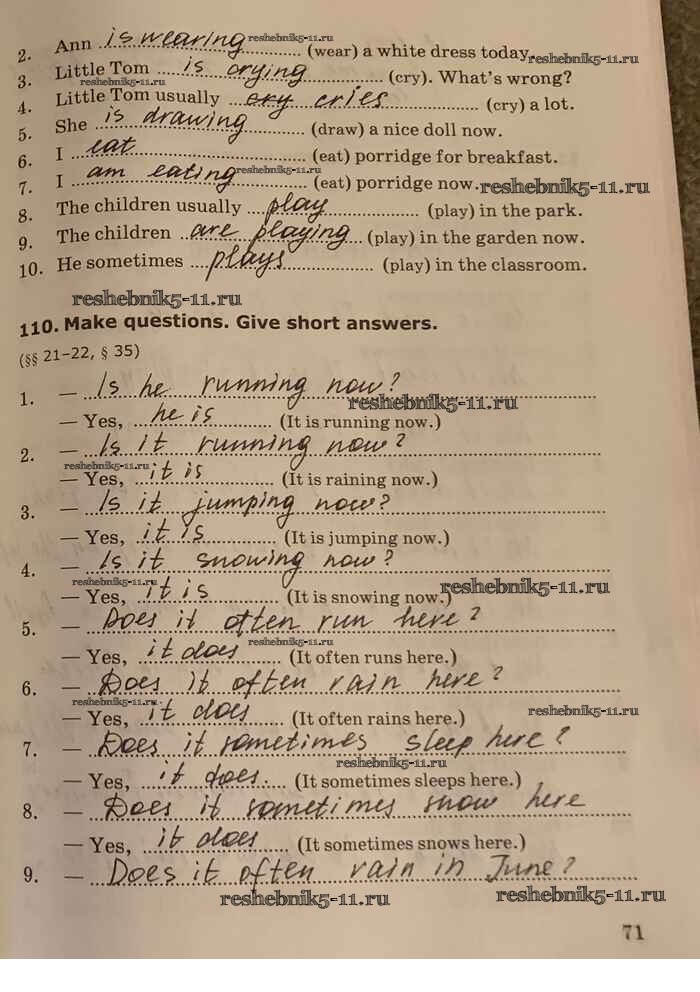 2. Ann is wearing (wear) a white dress today.
reshebnik5-11.ru
reshebnik5-11.ru
3. Little Tom is crying (cry). What's wrong?
reshebnik5-11.ru
4. Little Tom usually cry cries (cry) a lot.
5. She is drawing (draw) a nice doll now.
6. I eat (eat) porridge for breakfast.
7. I am eating (eat) porridge now.
reshebnik5-11.ru
reshebnik5-11.ru
8. The children usually play (play) in the park.
9. The children are playing (play) in the garden now.
10. He sometimes plays (play) in the classroom.
reshebnik5-11.ru
110. Make questions. Give short answers.
(§§ 21–22, § 35)
1. — Is he running now?
reshebnik5-11.ru
— Yes, he is (It is running now.)
2. — Is it running now?
reshebnik5-11.ru
— Yes, it is (It is raining now.)
3. — Is it jumping now?
— Yes, it is (It is jumping now.)
4. — Is it snowing now?
reshebnik5-11.ru
reshebnik5-11.ru
— Yes, it is (It is snowing now.)
5. — Does it often run here?
reshebnik5-11.ru
— Yes, it does (It often runs here.)
6. — Does it often rain here?
reshebnik5-11.ru
reshebnik5-11.ru
— Yes, it does (It often rains here.)
7. — Does it sometimes sleep here?
reshebnik5-11.ru
— Yes, it does. (It sometimes sleeps here.)
8. — Does it sometimes snow here
— Yes, it does (It sometimes snows here.)
9. — Does it often rain in June?
reshebnik5-11.ru
reshebnik5-11.ru
71